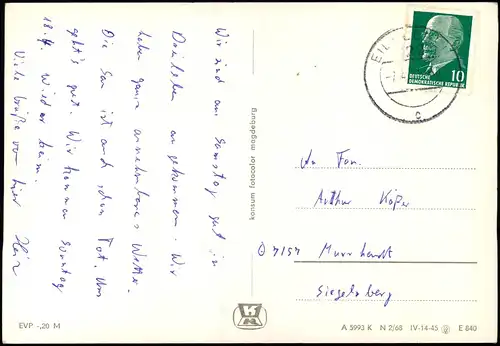 Wir sind am Samstag gut in
Dreileben angekommen. Wir
haben ganz annehmbares Wetter.
Die Sen ist auch schon Tot. Uns
geht's gut. Wir kommen Sonntag
18.4. wieder heim.
Viele Grüße von hier
konsum fotocolor magdeburg
EIL
DDR
DEUTSCHE
DEMOKRATISCHE REPUBLIK
10
c
An Fam.
Arthur Käßer
7157 Murrhardt
Siegelsberg
EVP -,20 M
A 5993 K N 2/68 IV-14-45 E 840